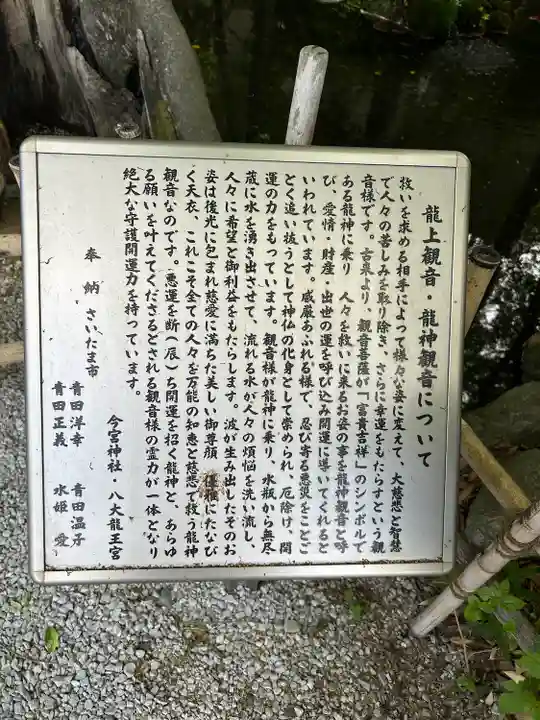 龍上観音・龍神観音について
救いを求める相手によって様々な姿に変えて、大慈悲と智慧
で人々の苦しみを取り除き、さらに幸運をもたらすという観
音様です。古来より、観音菩薩が「富貴吉祥」のシンボルで
ある龍神に乗り 人々を救いに来るお姿の事を龍神観音と呼
び、愛情・財産・出世の運を呼び込み開運に導いてくれると
いわれています。威厳あふれる様で、忍び寄る悪災をことご
とく追い拔うとして神仏の化身として崇められ、厄除け、開
運の力をもっています。観音様が龍神に乗り、水瓶から無尽
蔵に水を湧き出させて、流れる水が人々の煩悩を洗い流し、
人々に希望と御利益をもたらします。波が生み出したそのお
姿は後光に包まれ慈愛に満ちた美しい御尊顔 優雅にたなび
く天衣、これこそ全ての人々を万能の知恵と慈悲で救う龍神
観音なのです。悪運を断（辰）ち開運を招く龍神と、あらゆ
る願いを叶えてくださるとされる観音様の霊力が一体となり
絶大な守護開運力を持っています。
今宮神社・八大龍王宮
奉納 さいたま市
青田洋幸 青田温子
青田正義 水姫 愛